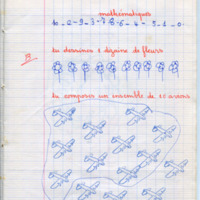 mathématiques
10 - 2 - 9 - 3 - 7 - 8 - 6 - 4 - 5 - 1 - 0
B
tu dessines 1 dizaine de fleurs
tu composes un ensemble de 15 avions